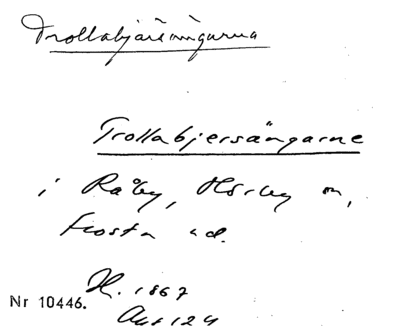 Trollabjärsängarna
Trollabjersängarne
i Råby, Hörby sn,
Frosta hd.
H. 1867
Nr 10446.
Akt 124